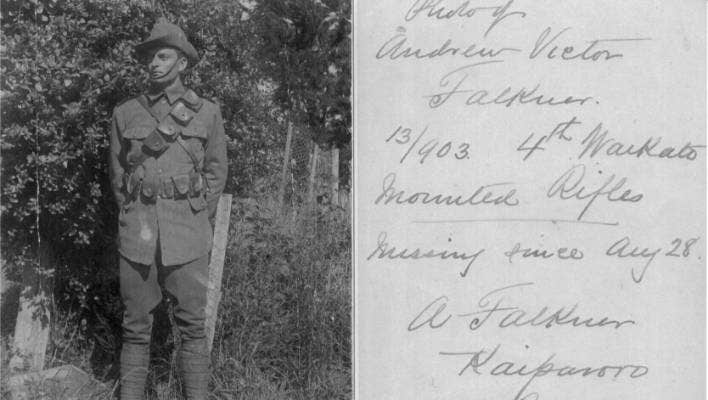 Photo of
Andrew Victor
Falkner.
13/903 4th Waikato
Mounted Rifles
Missing since Aug 28.
A Falkner
Kaiparoro